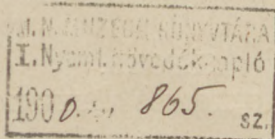 M. N. MUZEUM KÖNYVTÁRA
I. Nyomt. növedéknapló
1900. 865. sz.